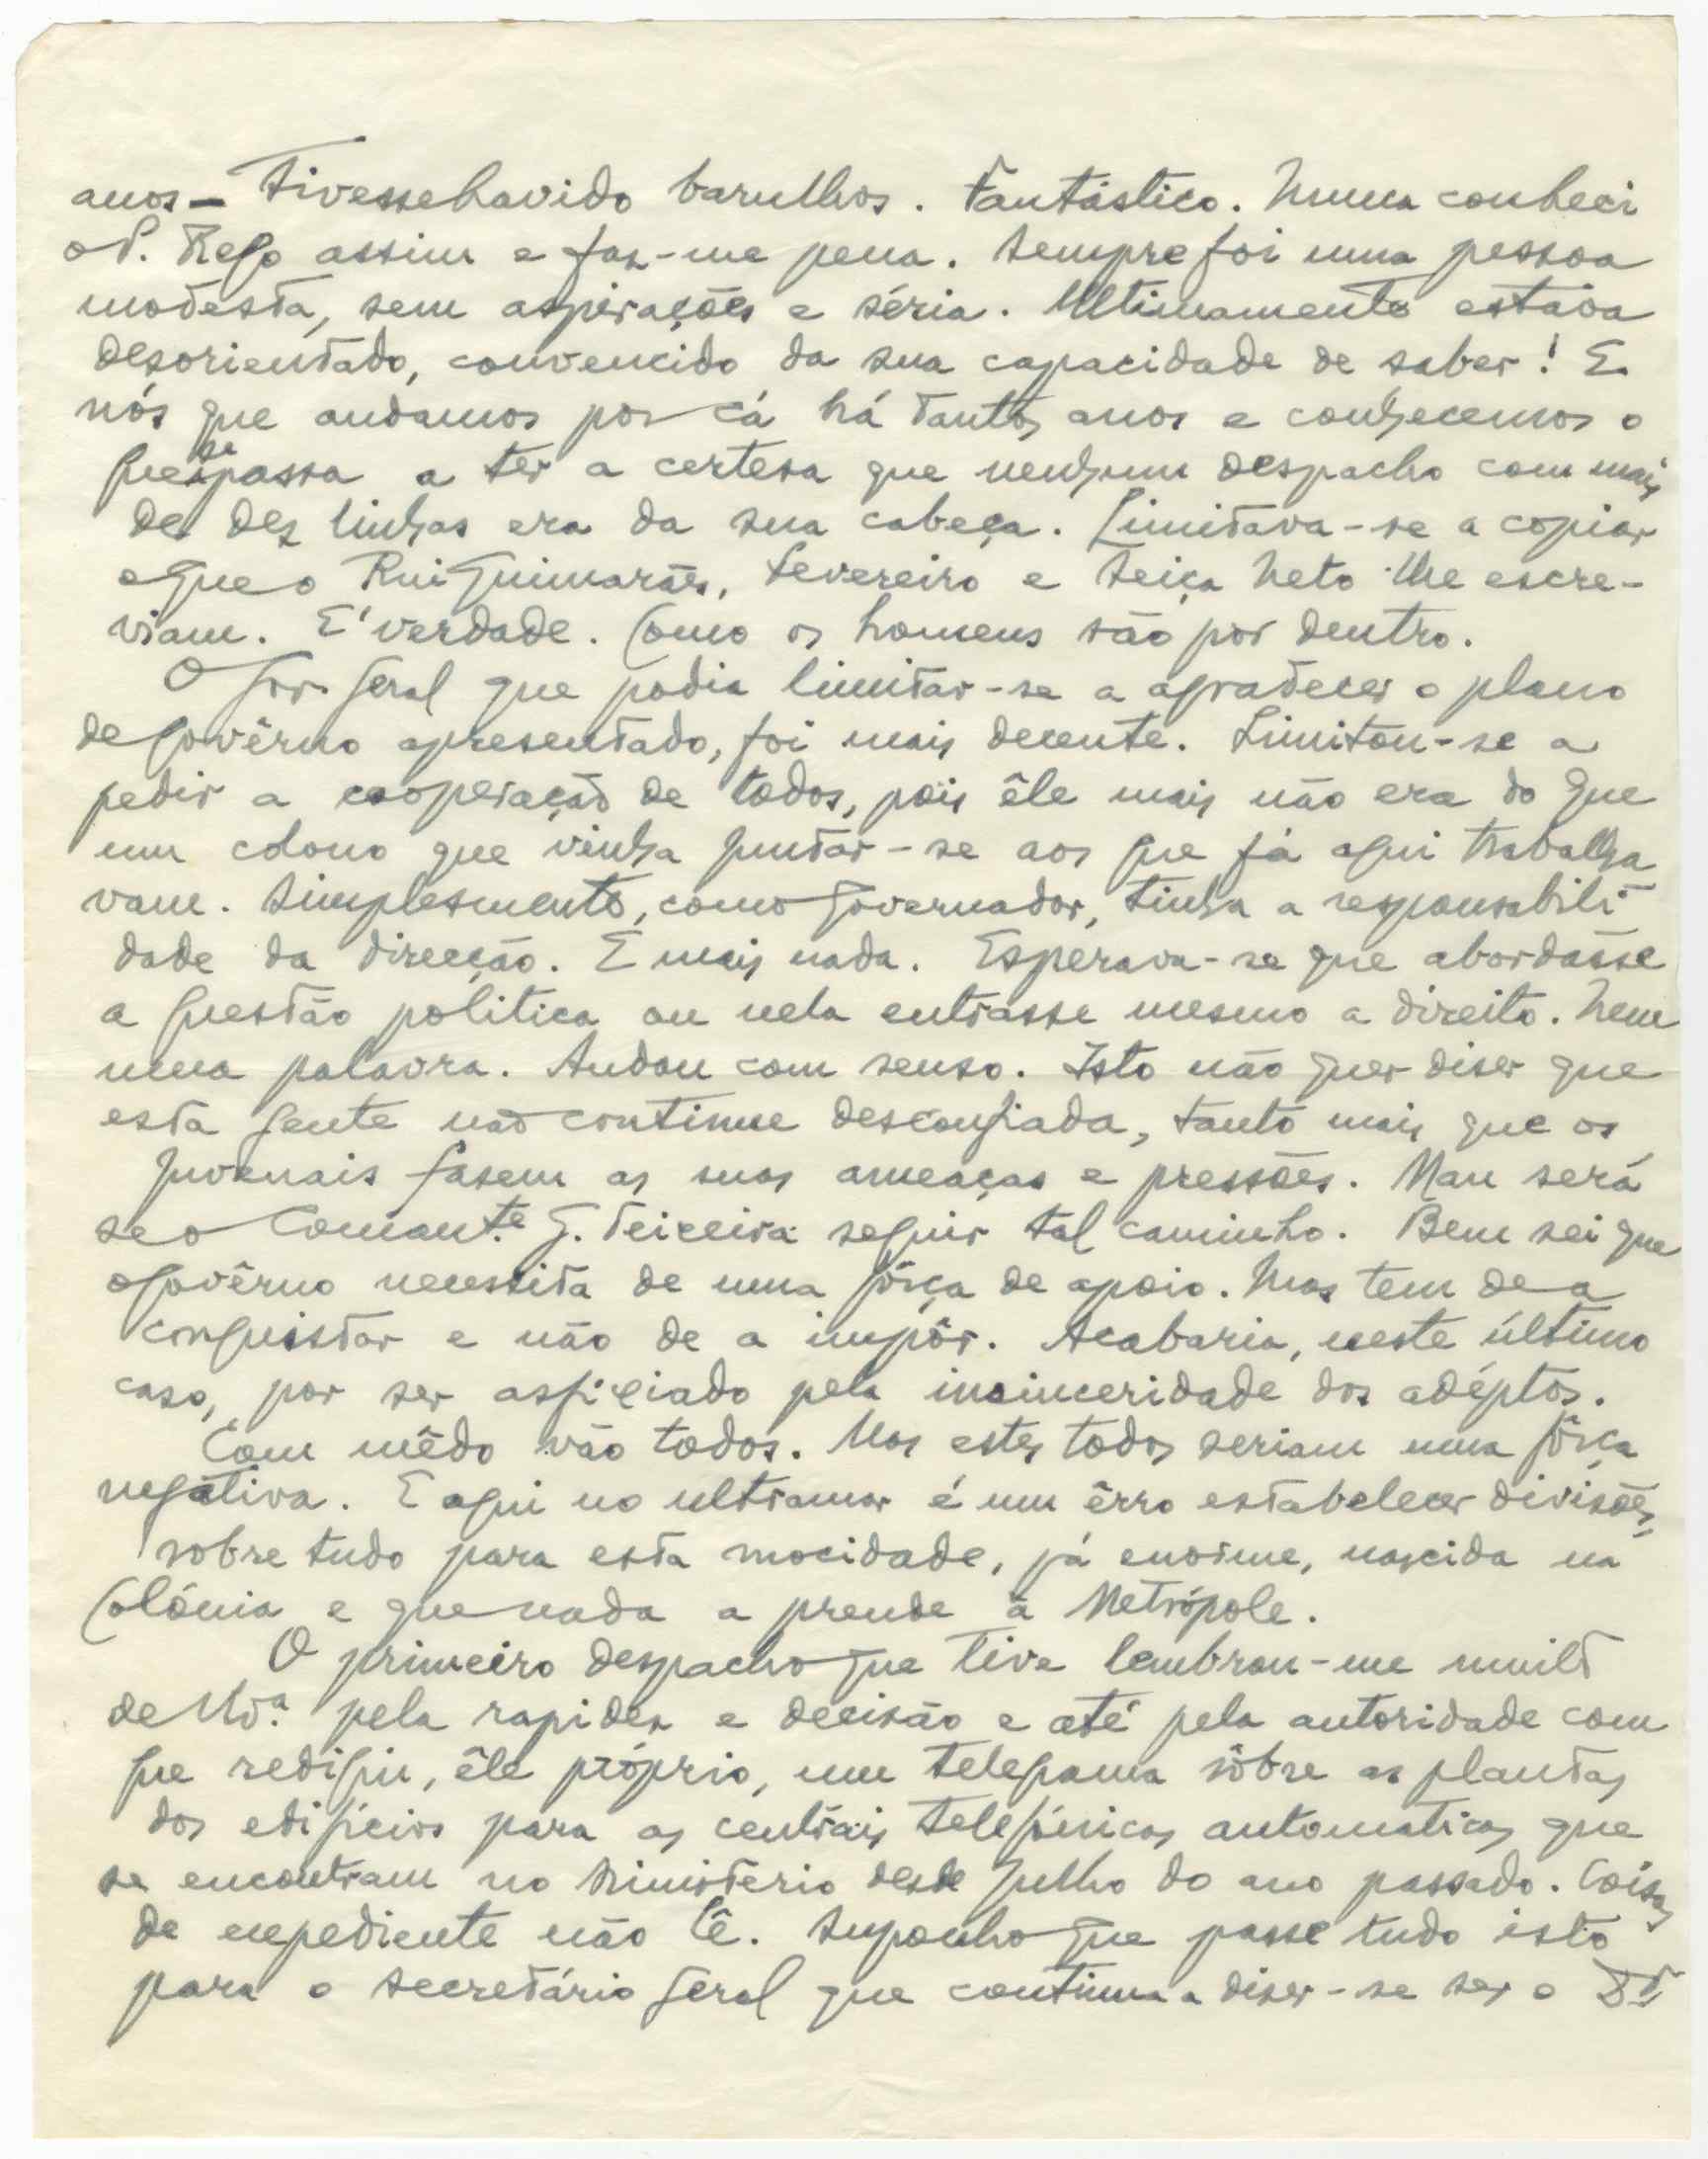 anos – tivesse havido barulhos. Fantástico. Nunca conheci
o P. Rego assim e faz-me pena. Sempre foi uma pessoa
modesta, sem aspirações e séria. Ultimamente estava
desorientado, convencido da sua capacidade de saber! E
nós que andamos por cá há tantos anos e conhecemos o
que se passa a ter a certesa que nenhum despacho com mais
de dez linhas era da sua cabeça. Limitava-se a copiar
o que o Rui Guimarães, Fevereiro e Seiça Neto lhe escre-
viam. E' verdade. Como os homens são por dentro.
O Gov. Geral que podia limitar-se a agradecer o plano
de Govêrno apresentado, foi mais decente. Limitou-se a
pedir a cooperação de todos, pois êle mais não era do que
um colono que vinha juntar-se aos que já aqui trabalha
vam. Simplesmente, como Governador, tinha a responsabili-
dade da direcção. E mais nada. Esperava-se que abordásse
a questão politica ou nela entrasse mesmo a direito. Nem
uma palavra. Andou com senso. Isto não quer diser que
esta gente não continue desconfiada, tanto mais que os
Juvenais fasem as suas ameaças e pressões. Mau será
se o Coman.te G. Teixeira seguir tal caminho. Bem sei que
o Govêrno necessita de uma fôrça de apoio. Mas tem de a
conquistar e não de a impôr. Acabaria, neste último
caso, por ser asfixiado pela insinceridade dos adéptos.
Com mêdo vão todos. Mas estes todos seriam uma fôrça
negativa. E aqui no ultramar é um êrro estabelecer divisões,
sobre tudo para esta mocidade, já enorme, nascida na
Colónia e que nada a prende à Metrópole.
O primeiro despacho que tive lembrou-me muito
de pela rapidez e decisão e até pela autoridade com
que redigiu, êle próprio, um telegrama sôbre as plantas
dos edifícios para as centrais telefónicas automaticas que
se encontram no Ministério desde Julho do ano passado. Coisas
de expediente não lê. Suponho que passe tudo isto
para o Secretário Geral que continua a diser-se ser o Dr.